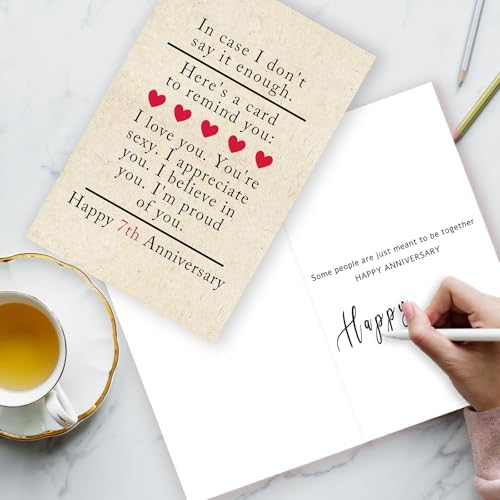 In case I don't
say it enough.
Here's a card
to remind you:
I love you. You're
sexy. I appreciate
you. I believe in
you. I'm proud
of you.
Happy 7th Anniversary
Some people are just meant to be together
HAPPY ANNIVERSARY
Happy